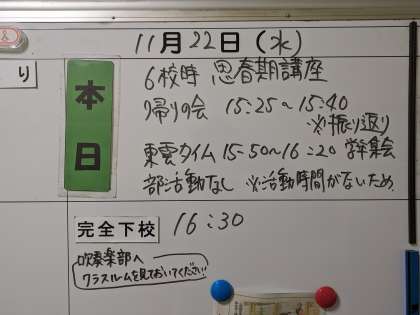 11月22日(水)
り
本日
6校時 思春期講座
帰りの会 15:25～15:40
※振り返り
東雲タイム 15-50～16:20 学年集会
部活動なし ※活動時間がないため
完全下校 16:30
吹奏楽部へ
クラスルームを見ておいてください